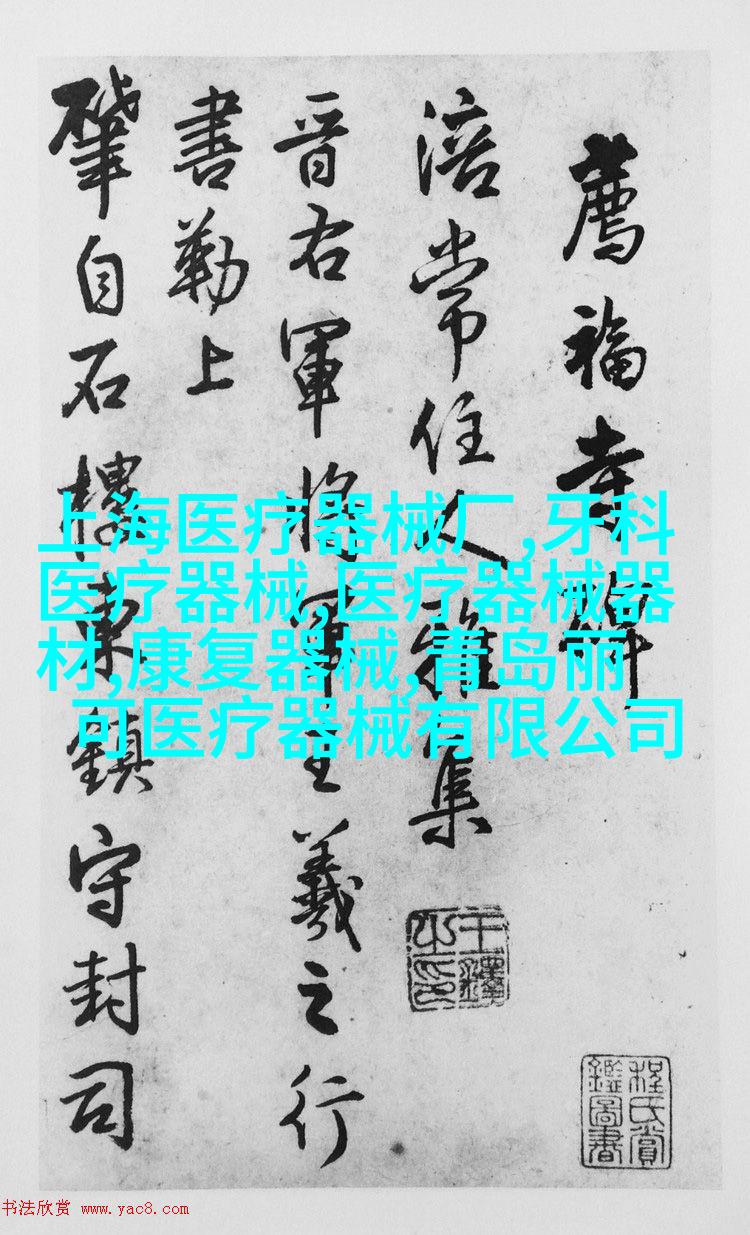 薦福寺碑
涪常住人雅集
晋右軍將軍王羲之行
書勒上
肇自石樓東鎮守封司
上海医疗器械厂,牙科
医疗器械,医疗器械器
材,康复器械,青岛丽
可医疗器械有限公司
王鐸之印
程氏賞鑑圖書
书法欣赏 www.yac8.com